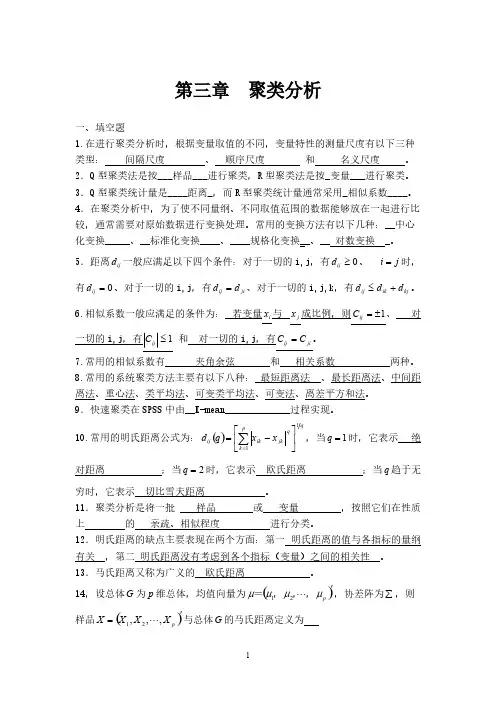 第三章　聚类分析
一、填空题
1.在进行聚类分析时，根据变量取值的不同，变量特性的测量尺度有以下三种
类型：　间隔尺度　、　顺序尺度　和　名义尺度　。
2．Q型聚类法是按___样品___进行聚类，R型聚类法是按_变量___进行聚类。
3．Q型聚类统计量是____距离_，而R型聚类统计量通常采用_相似系数____。
4．在聚类分析中，为了使不同量纲、不同取值范围的数据能够放在一起进行比
较，通常需要对原始数据进行变换处理。常用的变换方法有以下几种：__中心
化变换_____、__标准化变换____、____规格化变换__、__ 对数变换 _。
5．距离d_{ij}一般应满足以下四个条件：对于一切的i,j，有d_{ij}≥0、　i=j时，
有d_{ij}=0、对于一切的i,j，有d_{ij}=d_{ji}、对于一切的i,j,k，有d_{ij}≤d_{ik}+d_{kj}。
6.相似系数一般应满足的条件为：　若变量x_i与 x_j成比例，则C_{ij}=±1、　对
一切的i,j，有|C_{ij}|≤1 和　对一切的i,j，有C_{ij}=C_{ji}。
7.常用的相似系数有　夹角余弦　和　相关系数　两种。
8.常用的系统聚类方法主要有以下八种：　最短距离法　、最长距离法、中间距
离法、重心法、类平均法、可变类平均法、可变法、离差平方和法。
9．快速聚类在SPSS中由__K-mean_____________过程实现。
10.常用的明氏距离公式为：d_{ij}(q)=[∑_{k=1}^{p}|x_{ik}-x_{jk}|^q]^{1/q}，当q=1时，它表示　绝
对距离　；当q=2时，它表示　欧氏距离　；当q趋于无
穷时，它表示　切比雪夫距离　。
11．聚类分析是将一批　样品　或　变量　，按照它们在性质
上　的　亲疏、相似程度　进行分类。
12．明氏距离的缺点主要表现在两个方面：第一 明氏距离的值与各指标的量纲
有关　，第二 明氏距离没有考虑到各个指标（变量）之间的相关性　。
13．马氏距离又称为广义的　欧氏距离　。
14，设总体G为p维总体，均值向量为μ=(μ_1，μ_2，…，μ_p)′，协差阵为∑，则
样品X=(X_1,X_2,…,X_p)′与总体G的马氏距离定义为
1